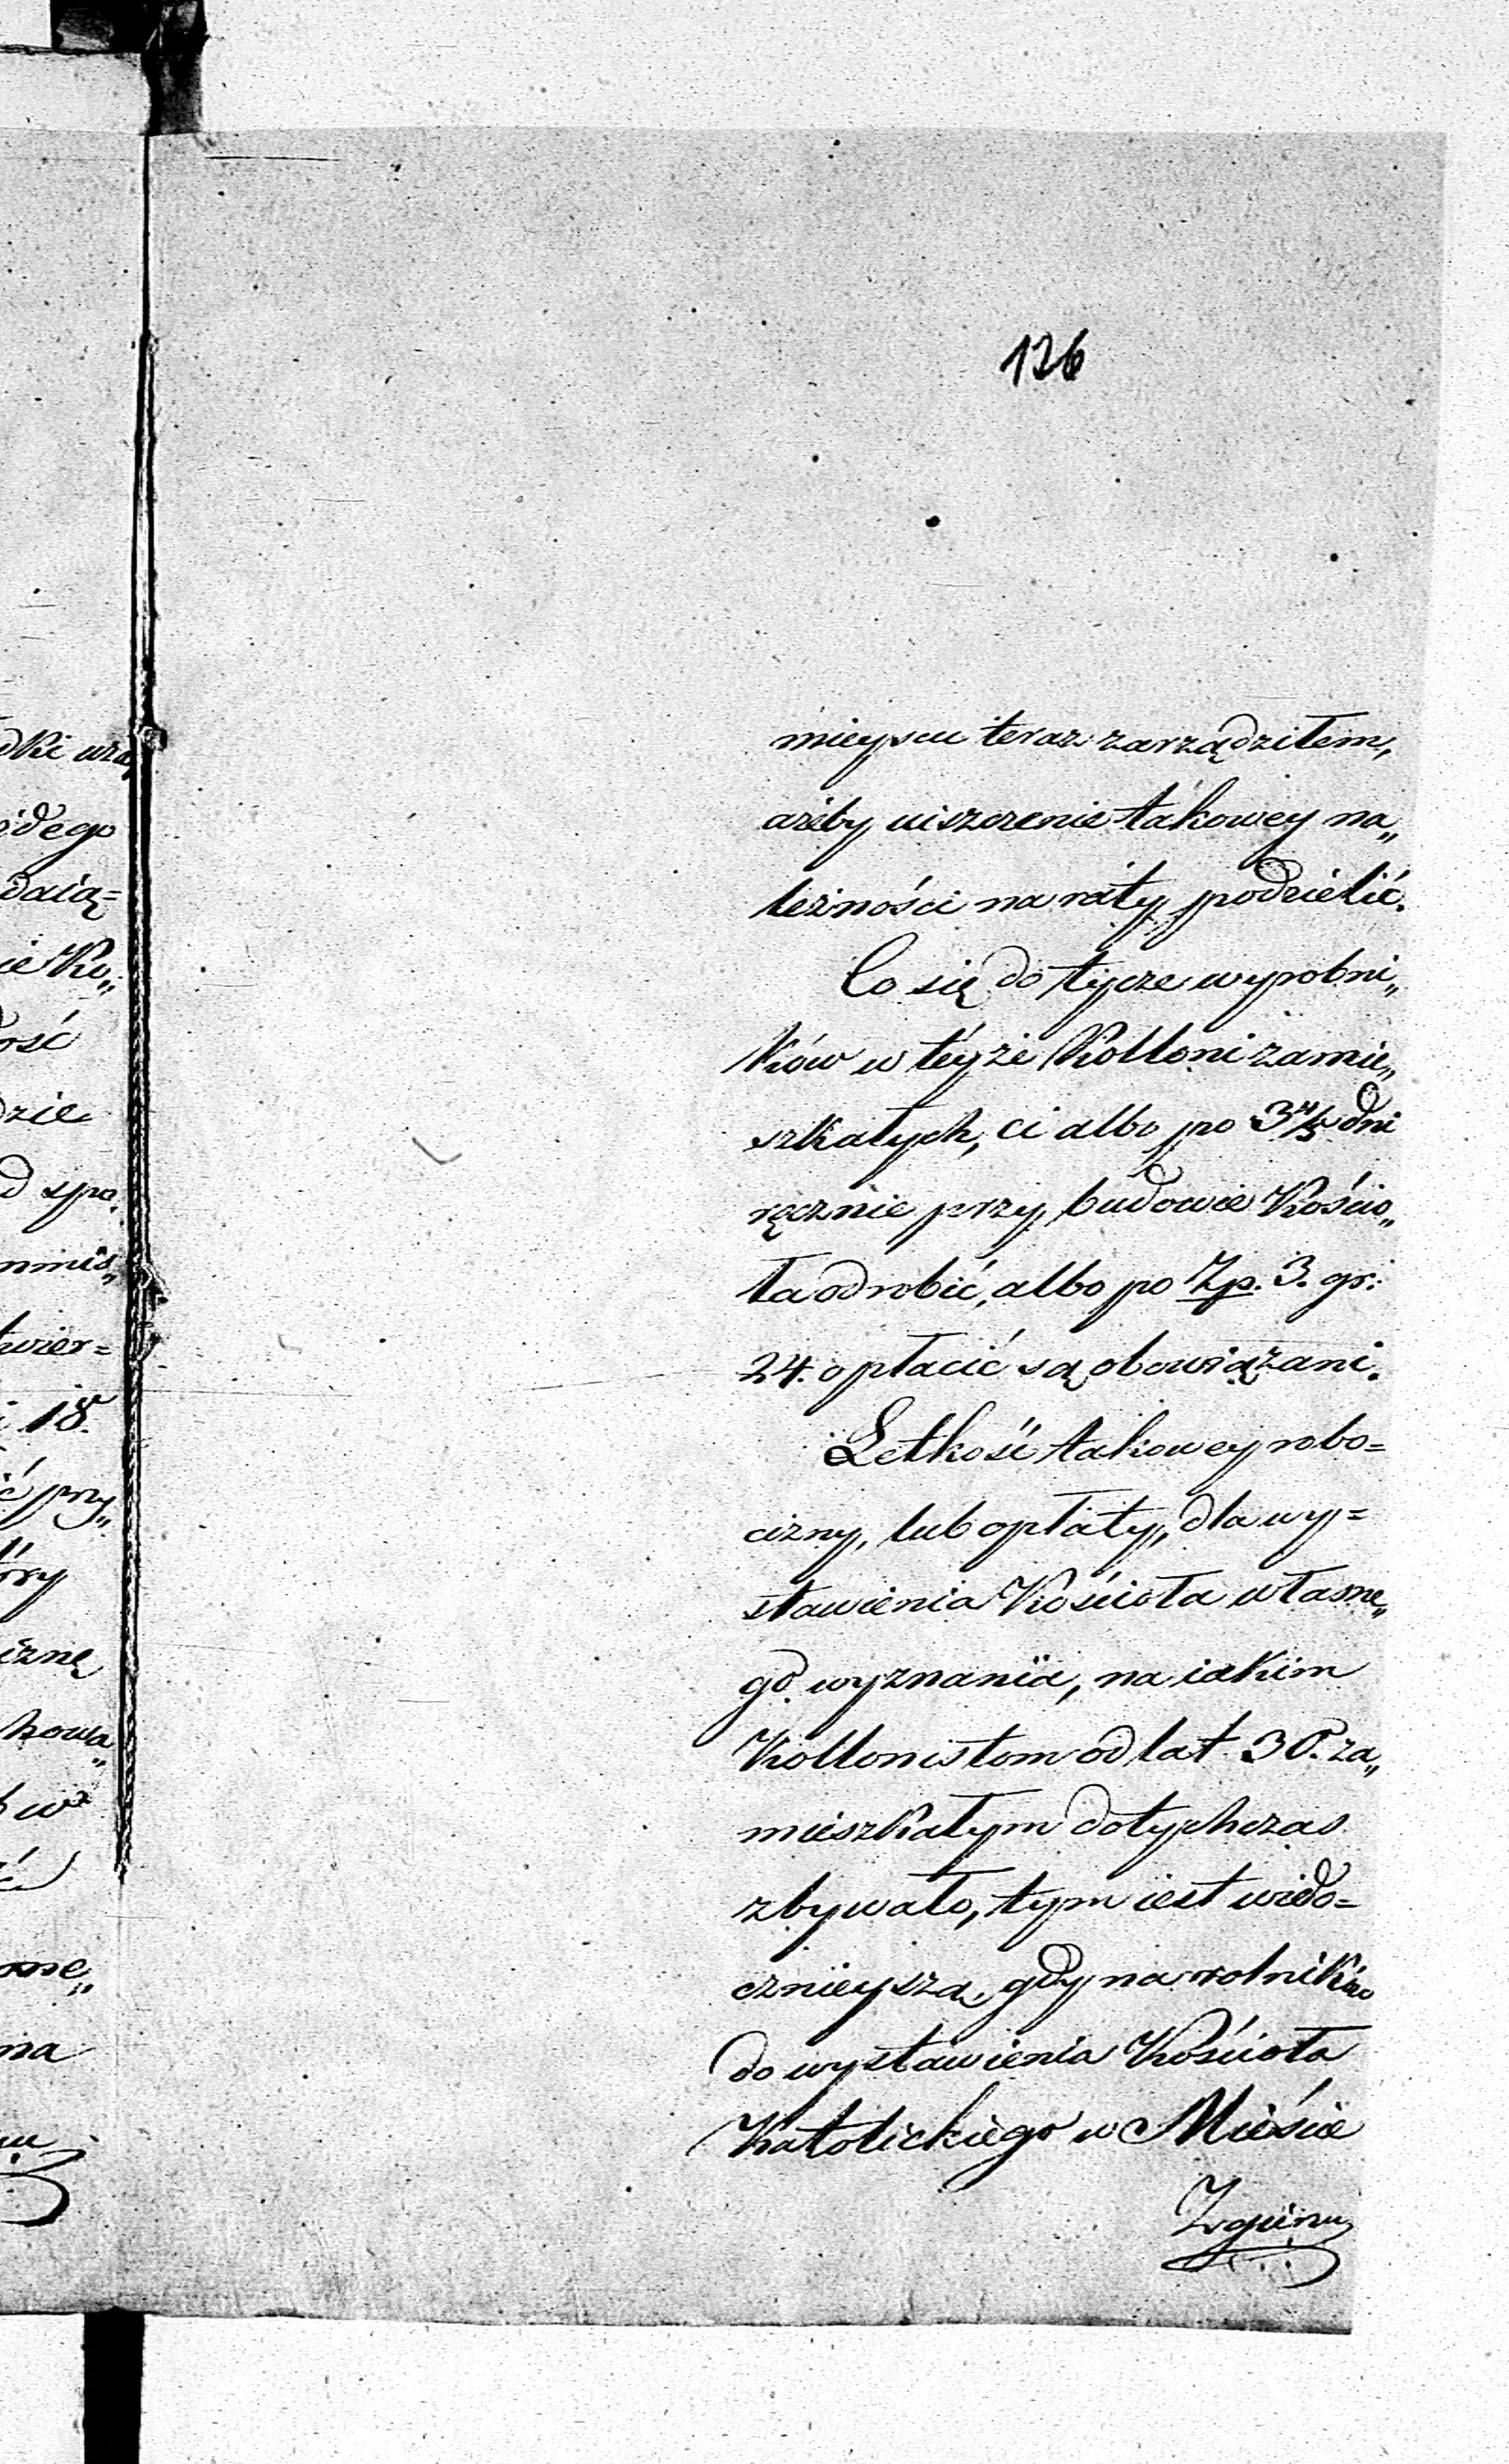 126
mieyscu teraz zarządziłem,
ażeby uiszczenie takowey na„
leżności na raty podzielić.
Co się do tycze wyrobni„
ków w téyże Kolloni zamie„
szkałych, ci albo po 3 4/5 dni
ręcznie przy budowie Kościo„
ła odrobić, albo po Zp. 3. gr:
24. opłacić są obowiązani.
Letkość takowey robo=
cizny, lub opłaty, dla wy=
stawienia Kościoła własne„
go wyznania, na iakim
Kollonistom od lat 30. za„
mieszkałym dotychczas
zbywało, tym iest wido=
cznieysza, gdy na rolników
do wystawienia Kościoła
Katolickiego w Mieście
dki
ódego
daią=
ie Ko„
ość
dzie
d spo„
mmis„
twier=
i 18.
ć przy„
óry
iznę
howa„
w
na